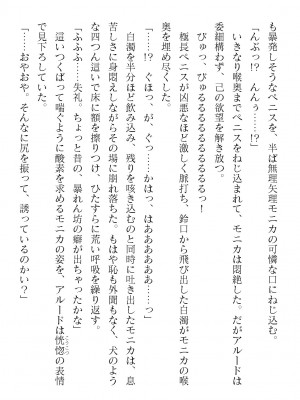 も暴発しそうなペニスを、半ば無理矢理モニカの可憐な口にねじ込む。
「んぶっ!? んんっ……!?」
いきなり喉奥までペニスをねじ込まれて、モニカは悶絶した。だがアルードは
委細構わず、己の欲望を解き放つ。
びゅっ、びゅうるるるるるるるるるっ!
極長ペニスが凶悪なほど激しく脈打ち、鈴口から飛び出した白濁がモニカの喉
奥を埋め尽くした。
「――!? ぐほっ、がっ、ぐっ……かはっ、はあああああ……っ」
白濁を半分ほど飲み込み、残りを咳き込むのと同時に吐き出したモニカは、息
苦しさに身悶えしながらその場に崩れ落ちた。もはや恥も外聞もなく、犬のよう
な四つん這いで床に額を擦りつけ、ひたすらに荒い呼吸を繰り返す。
「ふふふ……失礼。ちょっと昔の、暴れん坊の癖が出ちゃったかな」
這いつくばって喘ぐように酸素を求めるモニカの姿を、アルードは恍惚の表情
で見下ろしていた。
「……おやおや、そんなに尻を振って、誘っているのかい?」